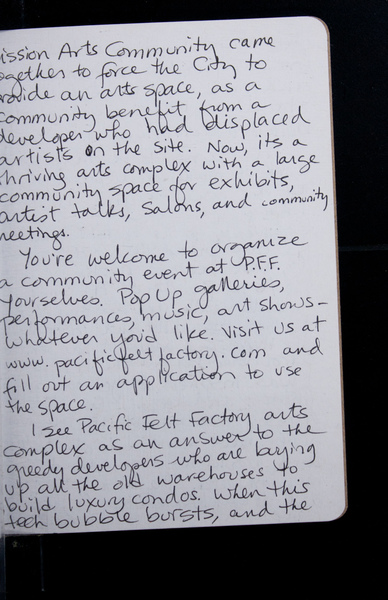 ission Arts Community came
ogether to force the City to
rovide an arts space, as a
community benefit from a
developer who had displaced
artists on the site. Now, its a
thriving arts complex with a large
community space for exhibits,
artist talks, salons, and community
meetings.
You're welcome to organize
a community event at P.F.F.
yourselves. Pop Up galleries,
performances, music, art shows-
whatever you'd like. Visit us at
www.pacificfeltfactory.com and
fill out an application to use
the space.
I see Pacific Felt Factory arts
complex as an answer to the
greedy developers who are buying
up all the old warehouses to
build luxury condos. When this
tech bubble bursts, and the